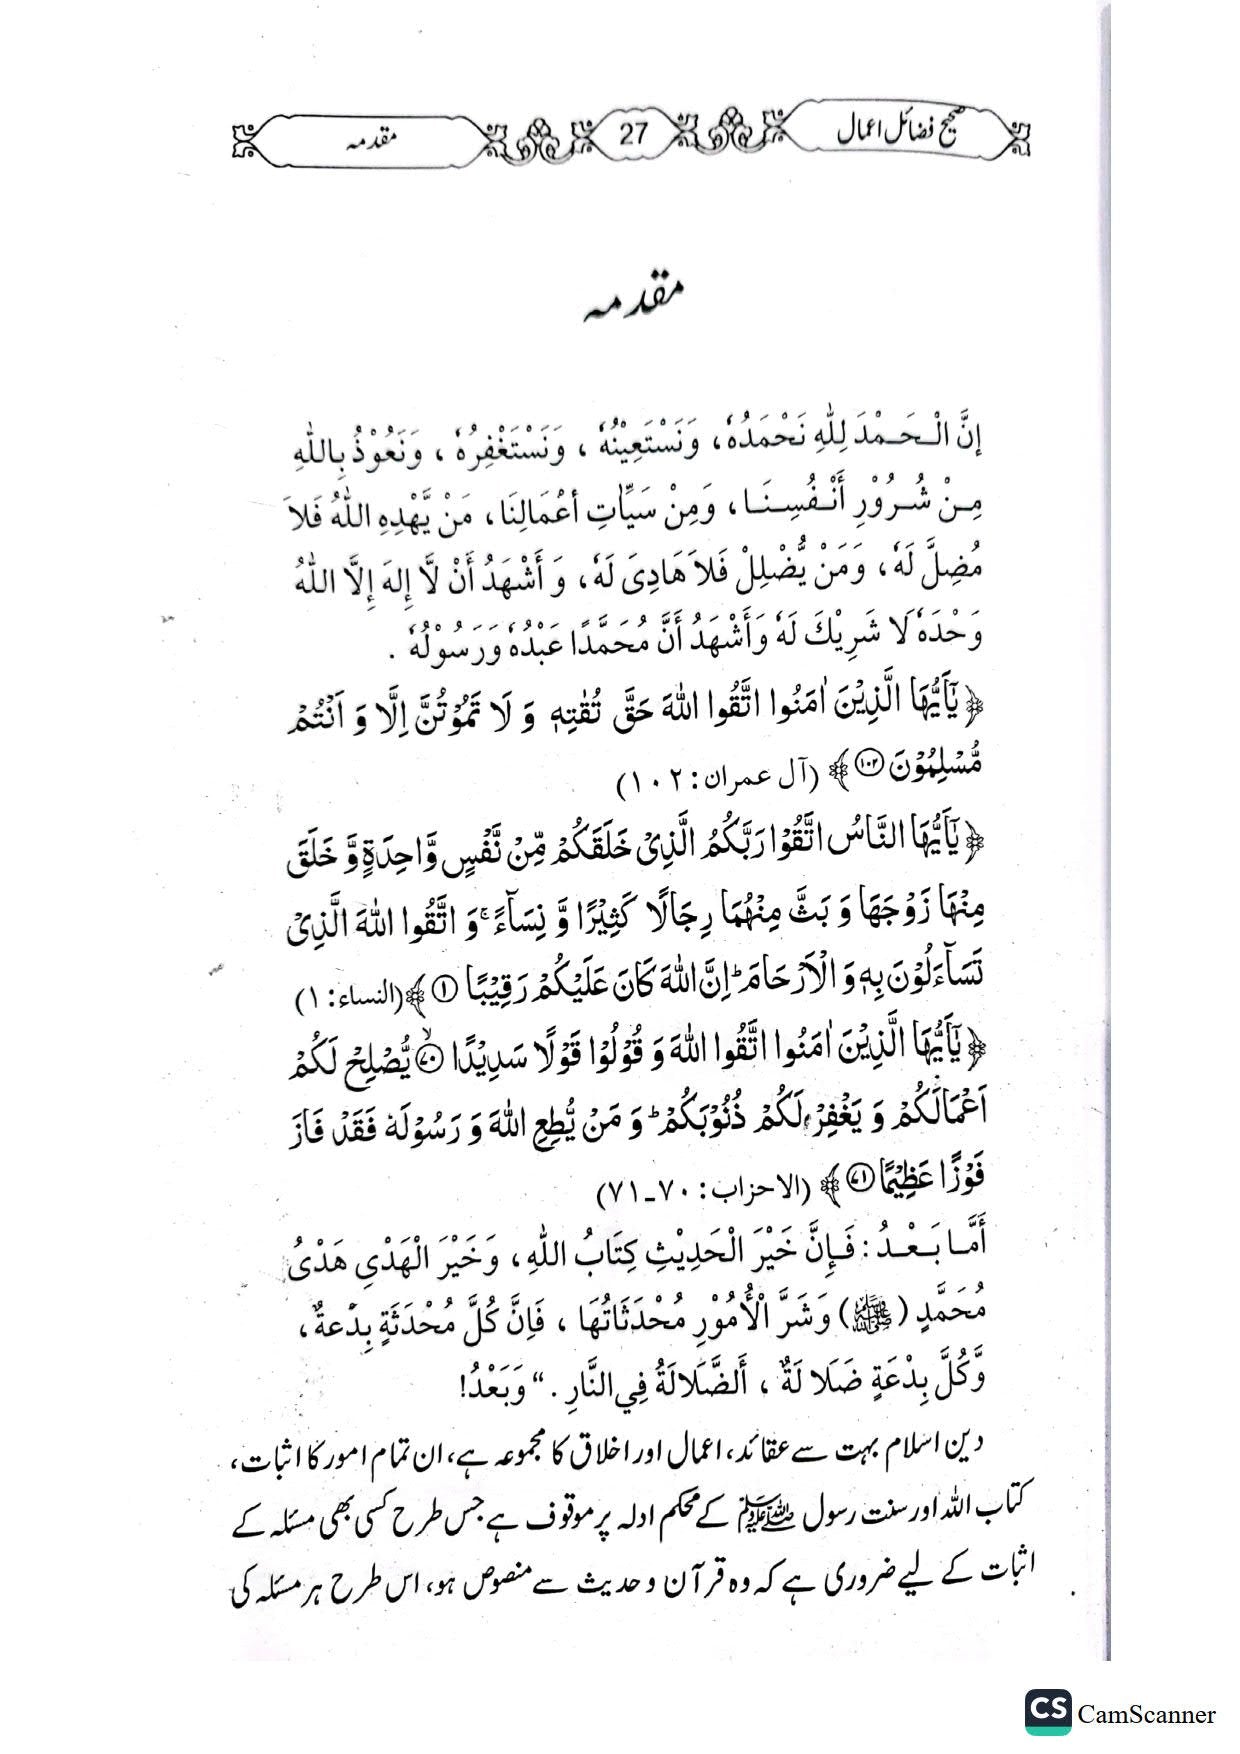 صحیح فضائل اعمال 27 مقدمہ
مقدمہ
إِنَّ الْـحَـمْـدَ لِلّٰهِ نَحْمَدُهٗ، وَنَسْتَعِيْنُهٗ ، وَنَسْتَغْفِرُهٗ ، وَنَعُوْذُ بِاللّٰهِ
مِـنْ شُـرُوْرِ أَنْـفُـسِـنَـا ، وَمِنْ سَيِّاٰتِ أَعْمَالِنَا، مَنْ يَّهْدِهِ اللّٰهُ فَلَا
مُضِلَّ لَهٗ، وَمَنْ يُّضْلِلْ فَلَا هَادِىَ لَهٗ، وَ أَشْهَدُ أَنْ لَّا إِلٰهَ إِلَّا اللّٰهُ
وَحْدَهٗ لَا شَرِيْكَ لَهٗ وَأَشْهَدُ أَنَّ مُحَمَّدًا عَبْدُهٗ وَرَسُوْلُهٗ .
﴿يٰۤاَيُّهَا الَّذِيْنَ اٰمَنُوا اتَّقُوا اللّٰهَ حَقَّ تُقٰتِهٖ وَ لَا تَمُوْتُنَّ اِلَّا وَ اَنْتُمْ
مُّسْلِمُوْنَ ۝۱۰۲﴾ (آل عمران: ۱۰۲)
﴿يٰۤاَيُّهَا النَّاسُ اتَّقُوْا رَبَّكُمُ الَّذِيْ خَلَقَكُمْ مِّنْ نَّفْسٍ وَّاحِدَةٍ وَّ خَلَقَ
مِنْهَا زَوْجَهَا وَ بَثَّ مِنْهُمَا رِجَالًا كَثِيْرًا وَّ نِسَآءً ۚ وَ اتَّقُوا اللّٰهَ الَّذِيْ
تَسَآءَلُوْنَ بِهٖ وَ الْاَرْحَامَ ؕ اِنَّ اللّٰهَ كَانَ عَلَيْكُمْ رَقِيْبًا ۝۱﴾ (النساء: ۱)
﴿يٰۤاَيُّهَا الَّذِيْنَ اٰمَنُوا اتَّقُوا اللّٰهَ وَ قُوْلُوْا قَوْلًا سَدِيْدًا ۝۷۰ۙ يُّصْلِحْ لَكُمْ
اَعْمَالَكُمْ وَ يَغْفِرْ لَكُمْ ذُنُوْبَكُمْ ؕ وَ مَنْ يُّطِعِ اللّٰهَ وَ رَسُوْلَهٗ فَقَدْ فَازَ
فَوْزًا عَظِيْمًا ۝۷۱﴾ (الاحزاب: ۷۰۔۷۱)
أَمَّـا بَـعْـدُ : فَـإِنَّ خَيْرَ الْحَدِيْثِ كِتَابُ اللّٰهِ ، وَخَيْرَ الْهَدْيِ هَدْىُ
مُحَمَّدٍ (ﷺ) وَشَرَّ الْأُمُوْرِ مُحْدَثَاتُهَا ، فَإِنَّ كُلَّ مُحْدَثَةٍ بِدْعَةٌ ،
وَّكُلَّ بِدْعَةٍ ضَلَالَةٌ ، أَلضَّلَالَةُ فِي النَّارِ . “ وَبَعْدُ!
دین اسلام بہت سے عقائد، اعمال اور اخلاق کا مجموعہ ہے، ان تمام امور کا اثبات،
کتاب اللہ اور سنت رسول ﷺ کے محکم ادلہ پر موقوف ہے جس طرح کسی بھی مسئلہ کے
اثبات کے لیے ضروری ہے کہ وہ قرآن و حدیث سے منصوص ہو، اس طرح ہر مسئلہ کی
CS CamScanner